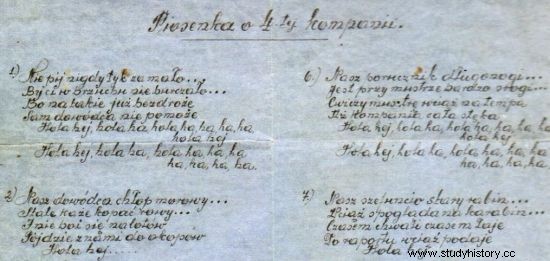 Piosenka o 4-ty kompanii.
1) Nie pij nigdy za mało...
By ci w brzuchu nie burczało...
Bo na takie już bezdroże
Sam dowódca nie pomoże
Hola hej, hola ha, hola ha, ha, ha, ha
hola hej
Hola hej, hola ha, hola ha, ha, ha
ha, ha, ha, ha.
2) Nasz dowódca chłop morowy...
Stale każe kopać rowy...
I nie boi się nalotów
Pójdzie z nami do okopów
Hola hej......
6) Nasz porucznik długonogi...
Jest przy musztrze bardzo srogi...
Ćwiczy musztrę wciąż na tempa
Aż kompania cała stęka
Hola hej, hola ha, hola ha, ha, ha, ha
hola hej
Hola hej, hola ha, hola ha, ha, ha
ha, ha, ha, ha.
7) Nasz szefuncio stary rabin...
Wciąż spogląda na karabin...
Czasem chwali czasem łaje
To raporty wciąż podaje
Hola
www.studyhistory.cc